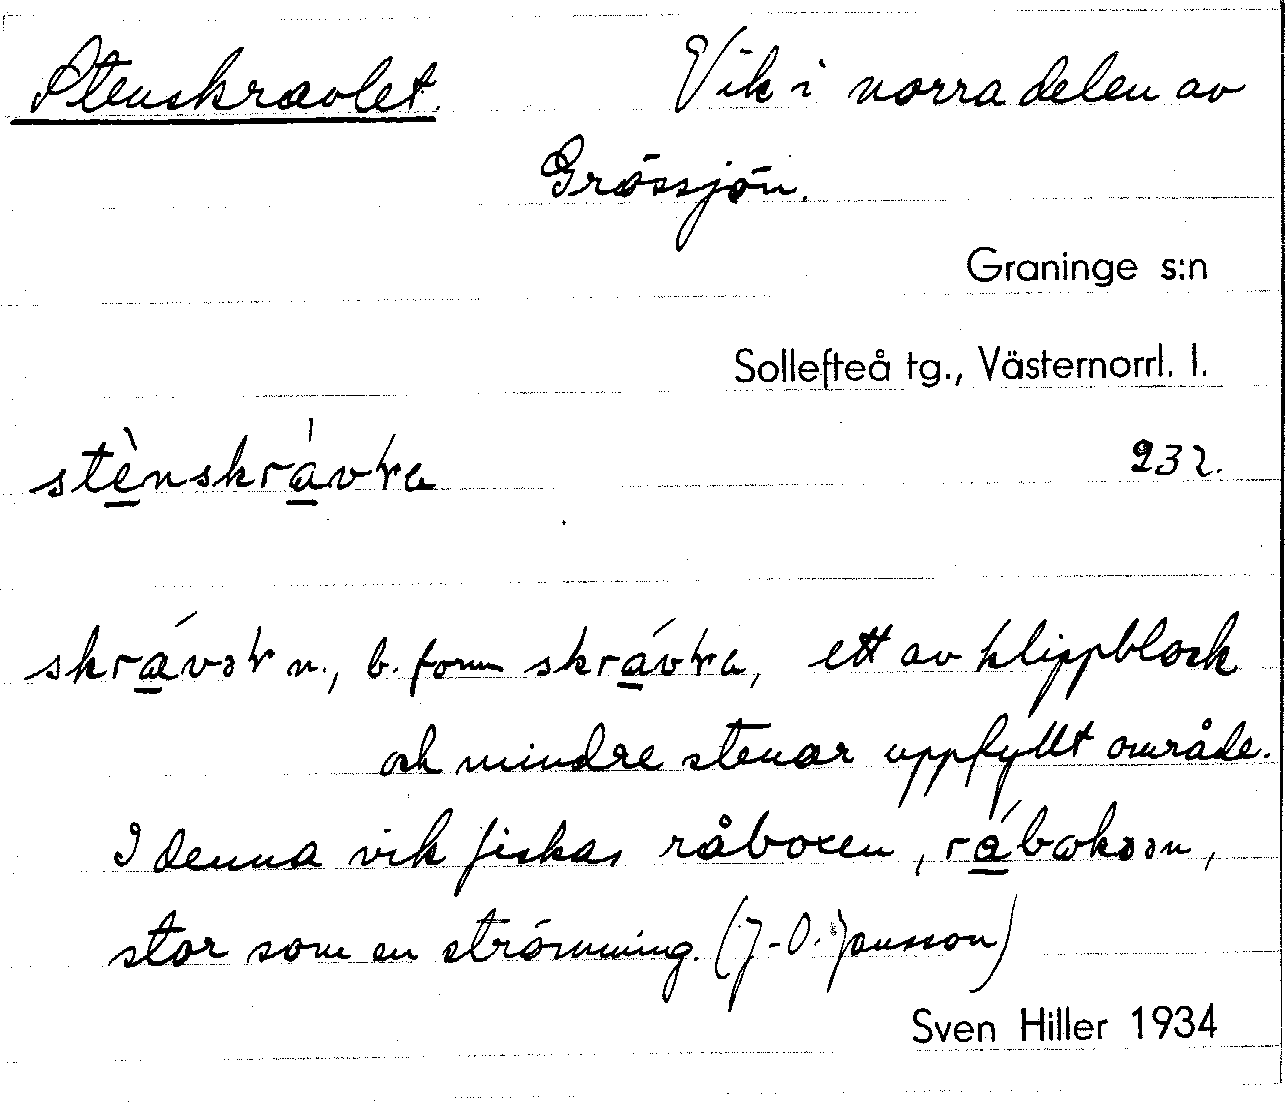 Stenskravlet. Vik i norra delen av
Grössjön.
Graninge s:n
Sollefteå tg., Västernorrl. l.
232.
n., b. form ett av klippblock
och mindre stenar uppfyllt område.
I denna vik fiskas råboxen,
stor som en strömming. (J-O. Jonsson)
Sven Hiller 1934